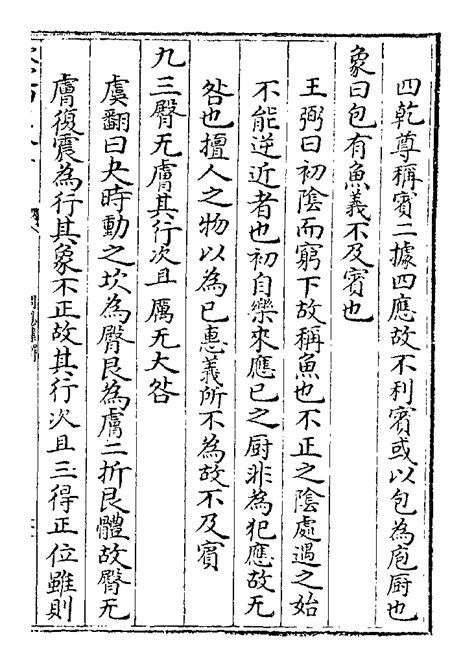 四乾尊稱賓二據四應故不利賓或以包為庖厨也
象曰包有魚義不及賓也
王弼曰初陰而窮下故稱魚也不正之陰處遇之始
不能逆近者也初自樂來應已之厨非為犯應故无
咎也擅人之物以為已惠義所不為故不及賓
九三臀无膚其行次且厲无大咎
虞翻曰夬時動之坎為臀艮為膚二折艮體故臀无
膚復震為行其象不正故其行次且三得正位雖則